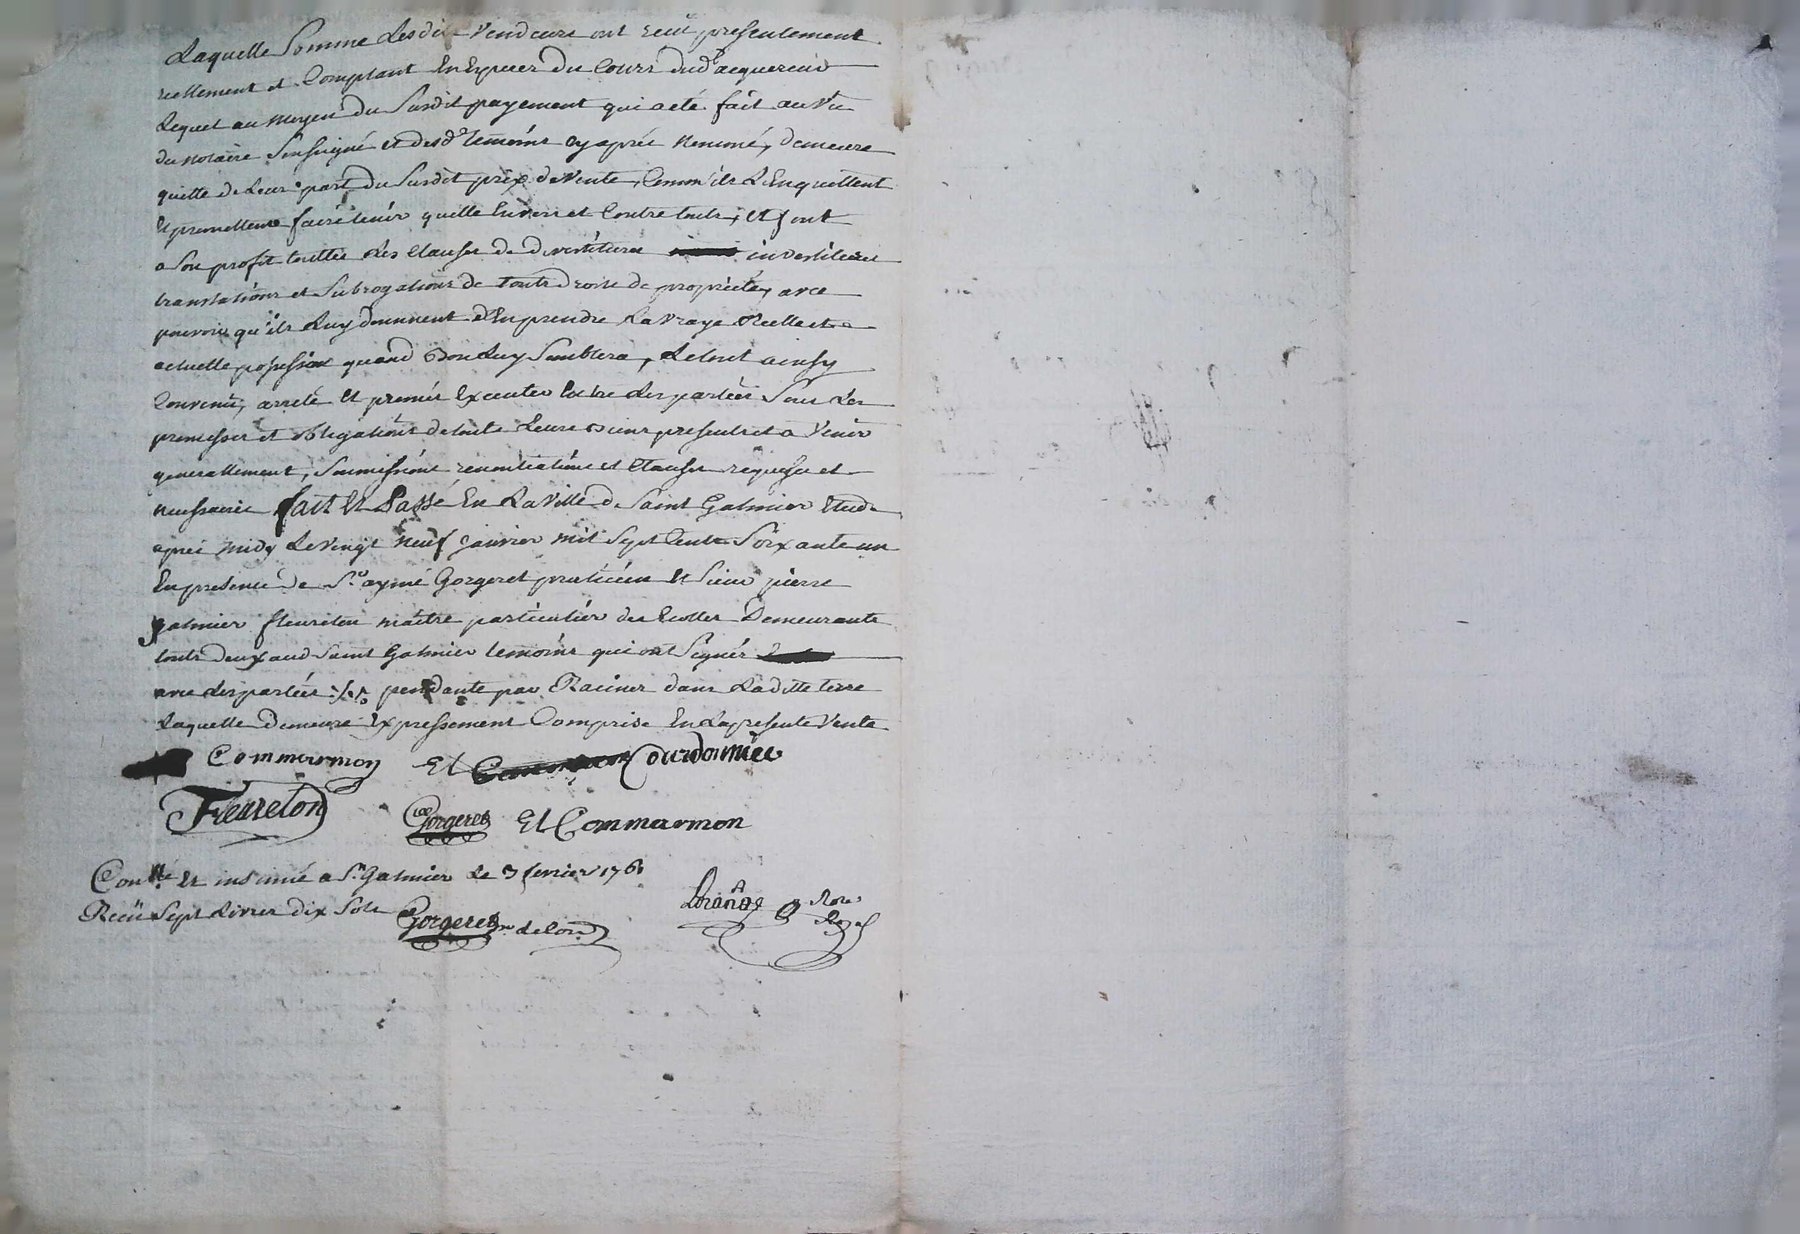 Laquelle somme Lesdits Vendeurs ont recut presentement
reellement et Comptant En Especes du Cours dud.t acquereur
Lequel au moyen du susdit payement qui a eté fait au Vu
du notaire soussigné et desd.s temoins cy apres nommé, demeure
quitte de Leur part du susdit prix de Vente, Comm'ils L'Enquittent
Et promettent faire tenir quitte Envers et Contre touts, Et font
a son profit touttes Les Clauses de devestitures investitures
translations et subrogations de touts droits de proprieté, avec
pouvoir qu'ils Luy donnent d'En prendre La Vraye Reelle et
actuelle possession quand Bon Luy semblera, Le tout ainsy
Convenu, arreté Et promis Executer Entre Les parties sous Les
promesses et obligations de touts Leurs Biens presents et a Venir
generallement, soumissions renontiations et Clauses requises et
necessaires fait Et Passé En La Ville de Saint Galmier Etude
apres midy Le vingt neuf janvier mil sept Cents soixante un
En presence de S.r aymé Gorgeret praticien Et Sieur pierre
galmier fleureton maitre particulier des Ecolles Demeurants
touts deux aud. Saint Galmier temoins qui ont Signés
avec Les parties pendante par Racines dans Laditte terre
Laquelle demeure Expressement Comprise En La presente Vente
Commarmon Et Courdonnier
Fleureton Gorgeret Et Commarmon
Con.llé Et insinué a S.t Galmier Le 3 fevrier 1761
Reçu Sept Livres dix Sols Gorgeret